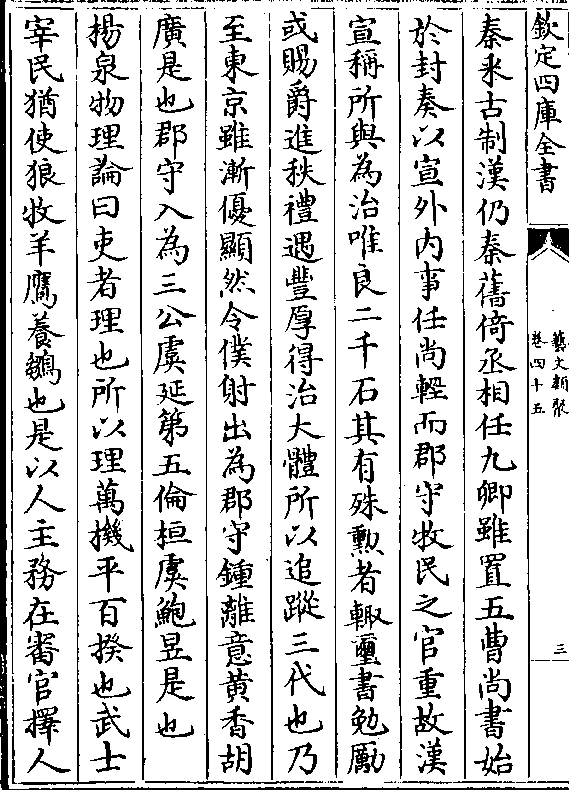 欽定四庫全書
藝文類聚
卷四十五
三
秦釆古制漢仍秦舊倚丞相任九卿雖置五曹尚書始
於封奏以宣外内事任尚輕而郡守牧民之官重故漢
宣稱所與為治唯良二千石其有殊勲者輙璽書勉勵
或賜爵進秩禮遇豐厚得治大體所以追蹤三代也乃
至東京雖漸優顯然令僕射出為郡守鍾離意黄香胡
廣是也郡守入為三公虞延第五倫桓虞鮑昱是也
楊泉物理論曰吏者理也所以理萬機平百揆也武士
宰民猶使狼牧羊鷹養鶵也是以人主務在審官擇人